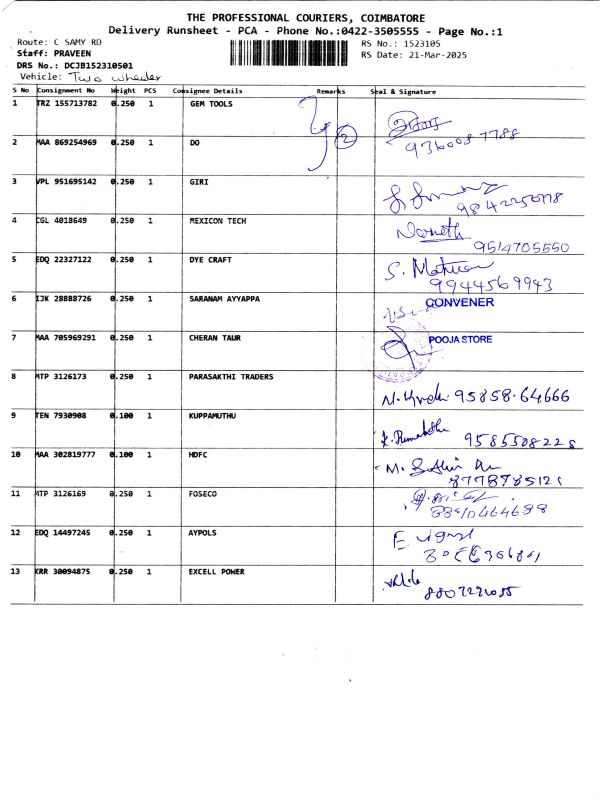 THE PROFESSIONAL COURIERS, COIMBATORE
Delivery Runsheet - PCA - Phone No.:0422-3505555 - Page No.:1
Route: C SAMY RD
RS No.: 1523105
Staff: PRAVEEN
RS Date: 21-Mar-2025
DRS No.: DCJB152310501
Vehicle: Two wheeler
S No Consignment No Weight PCS Consignee Details Remarks Seal & Signature
1 TRZ 155713782 0.250 1 GEM TOOLS
2 MAA 869254969 0.250 1 DO 2
3 VPL 951695142 0.250 1 GIRI
4 CGL 4018649 0.250 1 MEXICON TECH
9514705550
5 EDQ 22327122 0.250 1 DYE CRAFT
9944569943
6 IJK 28888726 0.250 1 SARANAM AYYAPPA CONVENER
7 MAA 705969291 0.250 1 CHERAN TAUR POOJA STORE
8 MTP 3126173 0.250 1 PARASAKTHI TRADERS
95858.64666
9 TEN 7930908 0.100 1 KUPPAMUTHU
9585508228
10 MAA 302819777 0.100 1 HDFC
8778785121
11 MTP 3126169 0.250 1 FOSECO
12 EDQ 14497245 0.250 1 AYPOLS
13 KRR 30094875 0.250 1 EXCELL POWER